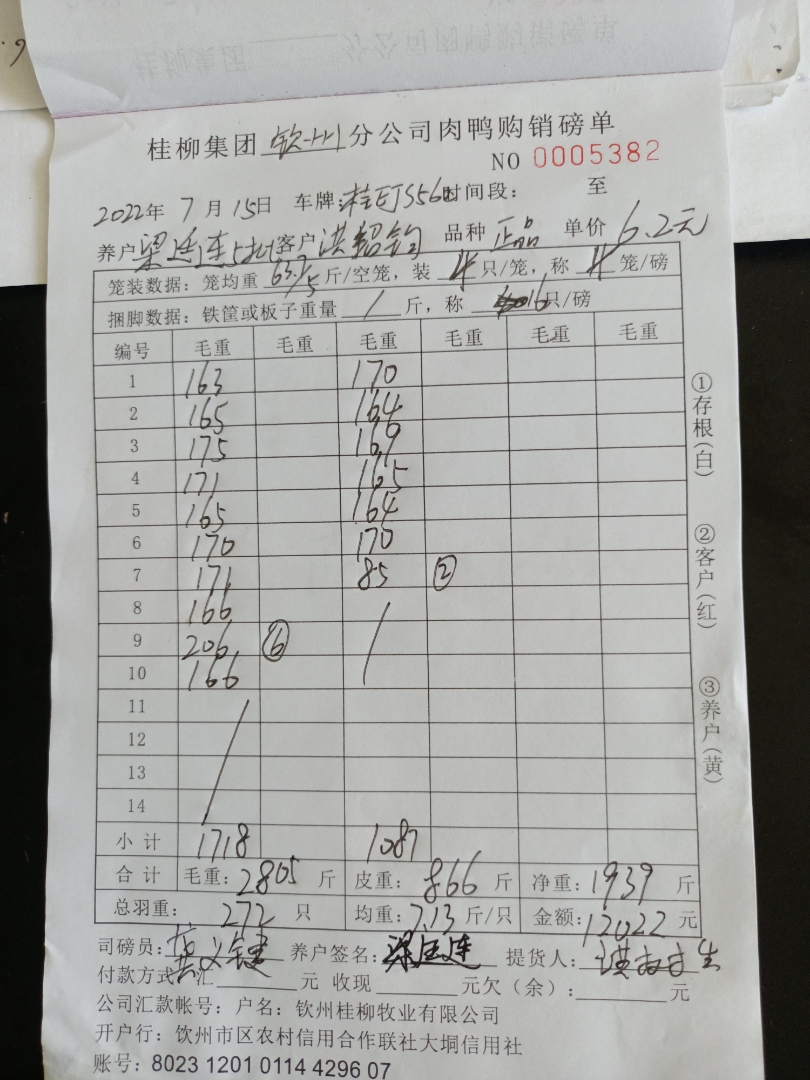 桂柳集团 钦州 分公司肉鸭购销磅单
NO 0005382
2022年 7月 15日 车牌: 时间段: 至
养户 梁 连 客户 洪韶钧 品种 正品 单价 6.2元
笼装数据: 笼均重 63.7/5 斤/空笼, 装 4 只/笼, 称 4 笼/磅
捆脚数据: 铁筐或板子重量 / 斤, 称 16 只/磅
编号 毛重 毛重 毛重 毛重 毛重 毛重
1 163 170
2 165 164
3 175 169
4 171 165
5 165 164
6 170 170
7 171 85 ②
8 166
9 206 ⑥
10 166
11
12
13
14
小计 1718 1087
合计 毛重: 2805 斤 皮重: 866 斤 净重: 1939 斤
总羽重: 272 只 均重: 7.13 斤/只 金额: 12022 元
司磅员: 养户签名: 梁 连 提货人:
付款方式: 汇 元 收现 元欠(余): 元
公司汇款帐号: 户名: 钦州桂柳牧业有限公司
开户行: 饮州市区农村信用合作联社大垌信用社
账号: 8023 1201 0114 4296 07
①存根(白) ②客户(红) ③养户(黄)